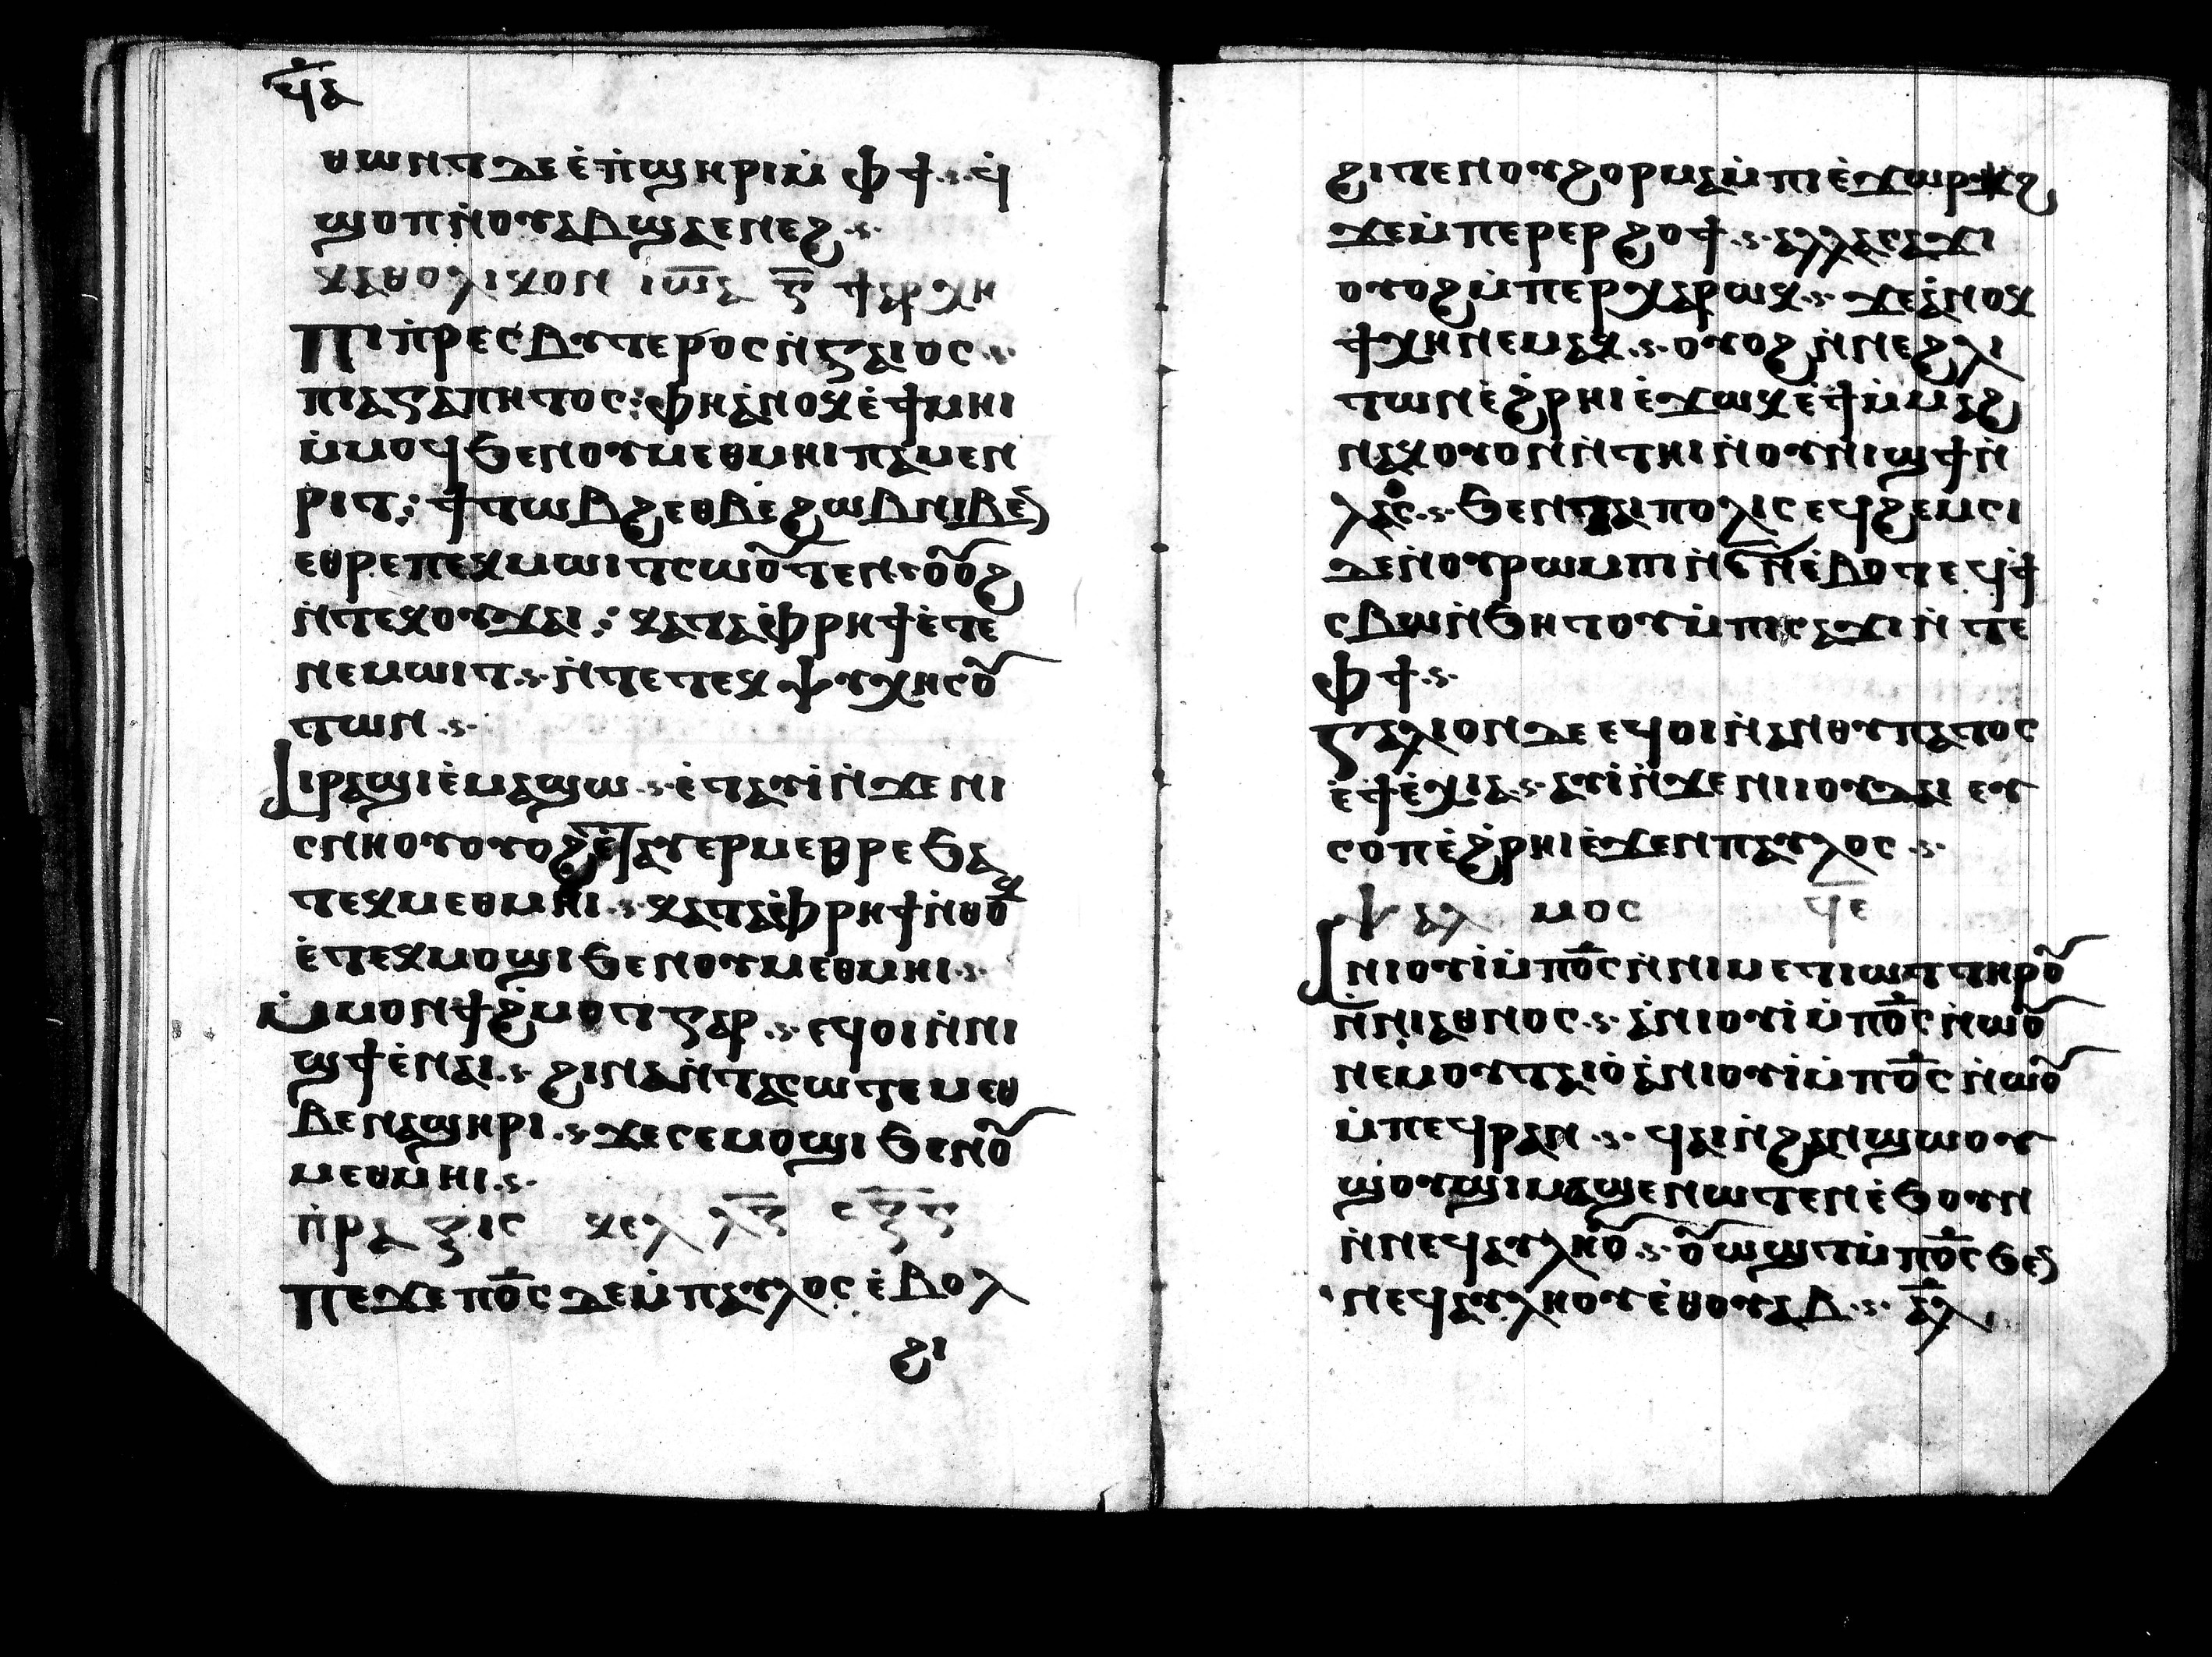 ϥⲇ
ⲑⲱⲛⲧ ⲇⲉ ⲉ̀ⲡ̀ϣⲏⲣⲓ ⲙ̀ⲫϯ ϥ̀
ϣⲟⲡ ⲛ̀ⲟⲩⲏⲃ ϣⲁⲉⲛⲉϩ
ⲕⲁⲑⲟⲗⲓⲕⲟⲛ ⲓⲱ̅ⲁ ⲅ̅ ϯⲁⲣⲭⲏ
ⲡⲓⲡ̀ⲣⲉⲥⲃⲩⲧⲉⲣⲟⲥ ⲛ̀ⲅⲁⲓⲟⲥ
ⲡⲓⲁⲅⲁⲡⲏⲧⲟⲥ: ⲫⲏ ⲁ̀ⲛⲟⲕ ⲉ̀ϯⲙⲏⲓ
ⲙ̀ⲙⲟϥ ϧⲉⲛ ⲟⲩⲙⲉⲑⲙⲏⲓ ⲡⲁⲙⲉⲛ
ⲣⲓⲧ: ϯⲧⲱⲃϩ ⲉⲑⲃⲉ ϩⲱⲃ ⲛⲓⲃⲉⲛ
ⲉⲑⲣⲉ ⲡⲉⲕⲙⲱⲓⲧ ⲥⲱⲟⲩⲧⲉⲛ ⲟⲩⲟϩ
ⲛ̀ⲧⲉⲕⲟⲩϫⲁⲓ: ⲕⲁⲧⲁ ⲫ̀ⲣⲏϯ ⲉ̀ⲧⲉ
ⲛⲉⲙⲱⲓⲧ ⲛ̀ⲧⲉ ⲧⲉⲕⲯⲩⲭⲏ ⲥⲟⲩ
ⲧⲱⲛ
ⲁⲓⲣⲁϣⲓ ⲉ̀ⲙⲁϣⲱ ⲉ̀ⲧⲁⲩⲓ̀ ⲛ̀ϫⲉ ⲛⲓ
ⲥⲛⲏⲟⲩ ⲟⲩⲟϩ ⲉ̀ⲧⲁⲩⲉⲣⲙⲉⲑⲣⲉ ϧⲁ
ⲧⲉⲕⲙⲉⲑⲙⲏⲓ ⲕⲁⲧⲁ ⲫ̀ⲣⲏϯ ⲛ̀ⲑⲟⲕ
ⲉ̀ⲧⲉⲕⲙⲟϣⲓ ϧⲉⲛ ⲟⲩⲙⲉⲑⲙⲏⲓ
ⲙ̀ⲙⲟⲛϯ ϩ̀ⲙⲟⲧ ⲅⲁⲣ ⲉϥⲟⲓ ⲛ̀ⲛⲓ
ϣϯ ⲉ̀ⲛⲁⲓ ϩⲓⲛⲁ ⲛ̀ⲧⲁⲥⲱⲧⲉⲙ ⲉⲑ
ⲃⲉ ⲛⲁϣⲏⲣⲓ ϫⲉ ⲥⲉⲙⲟϣⲓ ϧⲉⲛ ⲟⲩ
ⲙⲉⲑⲙⲏⲓ
ⲡ̀ⲣⲁⲝⲓⲥ ⲕⲉⲗ
ⲡⲉϫⲉ ⲡ̅ⲟ̅ⲥ̅ ⲇⲉ ⲙ̀ⲡⲁⲩⲗⲟⲥ ⲉ̀ⲃⲟⲗ
ϩⲓ
ϩⲓⲧⲉⲛ ⲟⲩϩⲟⲣⲁⲙⲁ ⲙ̀ⲡⲓⲉ̀ϫⲱⲣϩ
ϫⲉ ⲙ̀ⲡⲉⲣⲉⲣϩⲟϯ ⲁⲗⲗⲁ ⲥⲁϫⲓ
ⲟⲩⲟϩ ⲙ̀ⲡⲉⲣⲭⲁⲣⲱⲕ ϫⲉ ⲁ̀ⲛⲟⲕ
ϯⲭⲏ ⲛⲉⲙⲁⲕ ⲟⲩⲟϩ ⲛ̀ⲛⲉ ϩⲗⲓ
ⲧⲱⲛ ⲉ̀ϩ̀ⲣⲏⲓ ⲉ̀ϫⲱⲕ ⲉ̀ϯⲙ̀ⲕⲁϩ
ⲛⲁⲕ ⲟⲩⲟⲛ ⲛ̀ⲧⲏⲓ ⲛ̀ⲟⲩⲛⲓϣϯ ⲛ̀
ⲗⲁⲟⲥ ϧⲉⲛ ⲧⲁⲓⲡⲟⲗⲓⲥ ⲉϥϩⲉⲙⲥⲓ
ⲇⲉ ⲛ̀ⲟⲩⲣⲟⲙⲡⲓ ⲛⲉⲙ ⲋ̅ ⲛ̀ⲉ̀ⲃⲟⲧ ⲉϥϯ
ⲥⲃⲱ ⲛ̀ϧⲏⲧⲟⲩ ⲙ̀ⲡⲓⲥⲁϫⲓ ⲛ̀ⲧⲉ
ⲫϯ
ⲅⲁⲗⲓⲟⲛ ⲇⲉ ⲉϥⲟⲓ ⲛ̀ⲁⲛⲑⲩⲡⲁⲧⲟⲥ
ⲉ̀ϯⲉ̀ⲭⲓⲁ ⲁⲩⲓ̀ ⲛ̀ϫⲉ ⲛⲓⲓⲟⲩⲇⲁⲓ ⲉⲩ
ⲥⲟⲡ ⲉ̀ϩ̀ⲣⲏⲓ ⲉ̀ϫⲉⲛ ⲡⲁⲩⲗⲟⲥ
ⲯⲁⲗⲙⲟⲥ ϥ̅ⲉ̅
ⲁⲛⲓⲟⲩⲓ̀ ⲙ̀ⲡ̅ⲟ̅ⲥ̅ ⲛ̀ⲛⲓⲙⲉⲧⲓⲱⲧ ⲧⲏⲣⲟⲩ
ⲛ̀ⲛⲓⲉⲑⲛⲟⲥ ⲁ̀ⲛⲓⲟⲩⲓ̀ ⲙ̀ⲡ̅ⲟ̅ⲥ̅ ⲛ̀ⲱⲟⲩ
ⲛⲉⲙ ⲟⲩⲧⲁⲓⲟ̀ ⲁ̀ⲛⲓⲟⲩⲓ̀ ⲙ̀ⲡ̅ⲟ̅ⲥ̅ ⲛ̀ⲱⲟⲩ
ⲙ̀ⲡⲉϥⲣⲁⲛ ϥⲁⲓ ⲛ̀ϩⲁⲛϣⲱⲟⲩ
ϣⲟⲩϣⲓ ⲙⲁϣⲉⲛⲱⲧⲉⲛ ⲉ̀ϧⲟⲩⲛ
ⲛ̀ⲛⲉϥⲁⲩⲗⲏⲟⲩ ⲟⲩⲱϣⲧ ⲙ̀ⲡ̅ⲟ̅ⲥ̅ ϧⲉⲛ
ⲛⲉϥⲁⲩⲗⲏⲟⲩ ⲉ̀ⲑⲟⲩⲁⲃ ⲁⲗ